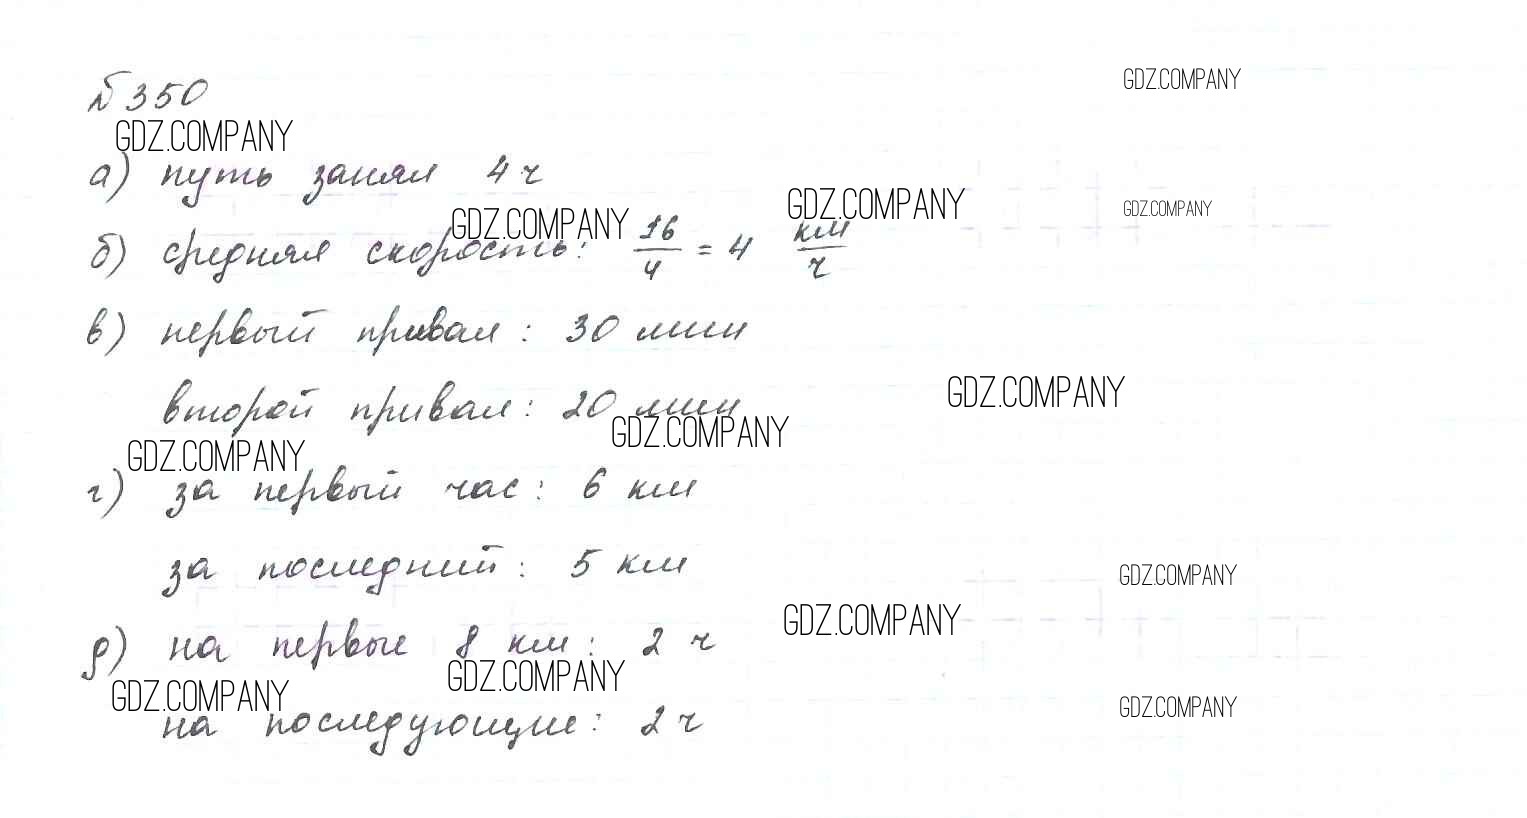 №350
GDZ.COMPANY
GDZ.COMPANY
а) путь занял 4 ч
GDZ.COMPANY
GDZ.COMPANY
GDZ.COMPANY
б) средняя скорость: 16/4 = 4 км/ч
в) первый привал: 30 мин
GDZ.COMPANY
второй привал: 20 мин
GDZ.COMPANY
GDZ.COMPANY
г) за первый час: 6 км
за последний: 5 км
GDZ.COMPANY
GDZ.COMPANY
д) на первые 8 км: 2 ч
GDZ.COMPANY
GDZ.COMPANY
GDZ.COMPANY
на последующие: 2 ч